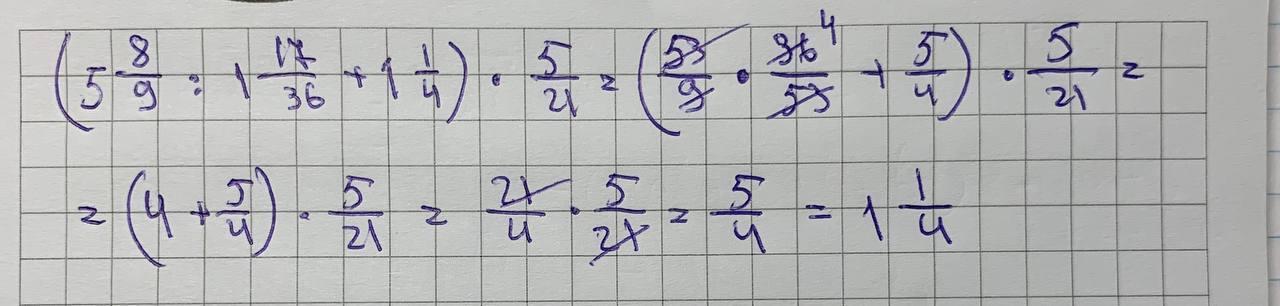 (5 8/9 : 1 17/36 + 1 1/4) · 5/21 = (53/9 · 36/53 4 + 5/4) · 5/21 =
= (4 + 5/4) · 5/21 = 21/4 · 5/21 = 5/4 = 1 1/4